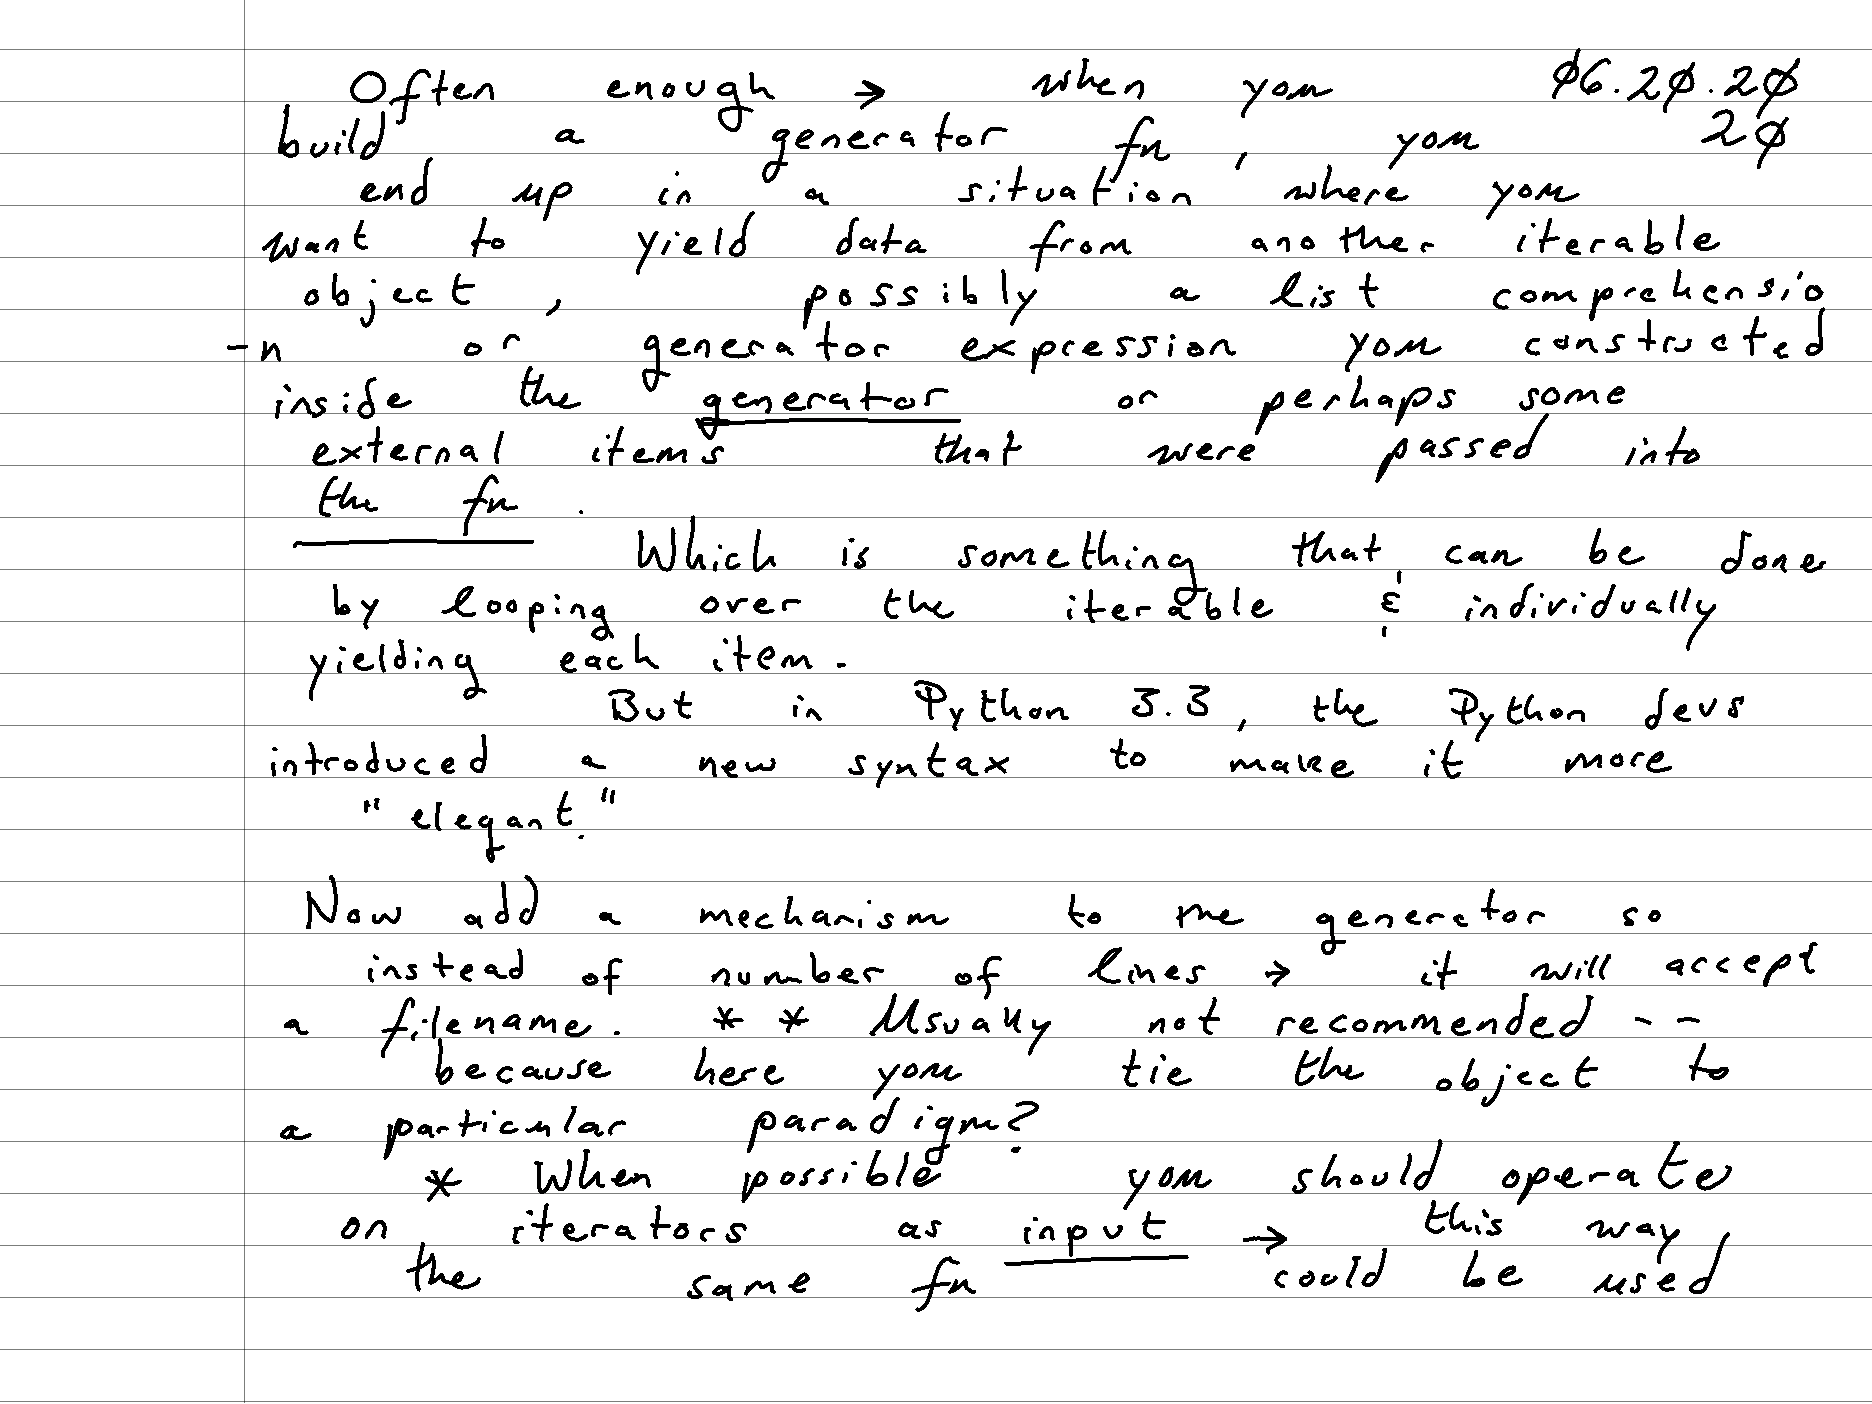 Often enough → when you 06.20.20
build a generator fn, you 20
end up in a situation where you
want to yield data from another iterable
object, possibly a list comprehensio
-n or generator expression you constructed
inside the generator or perhaps some
external items that were passed into
the fn.
Which is something that can be done
by looping over the iterable & individually
yielding each item.
But in Python 3.3, the Python devs
introduced a new syntax to make it more
"elegant."
Now add a mechanism to the generator so
instead of number of lines → it will accept
a filename. * * Usually not recommended --
because here you tie the object to
a particular paradigm?
* When possible you should operate
on iterators as input → this way
the same fn could be used